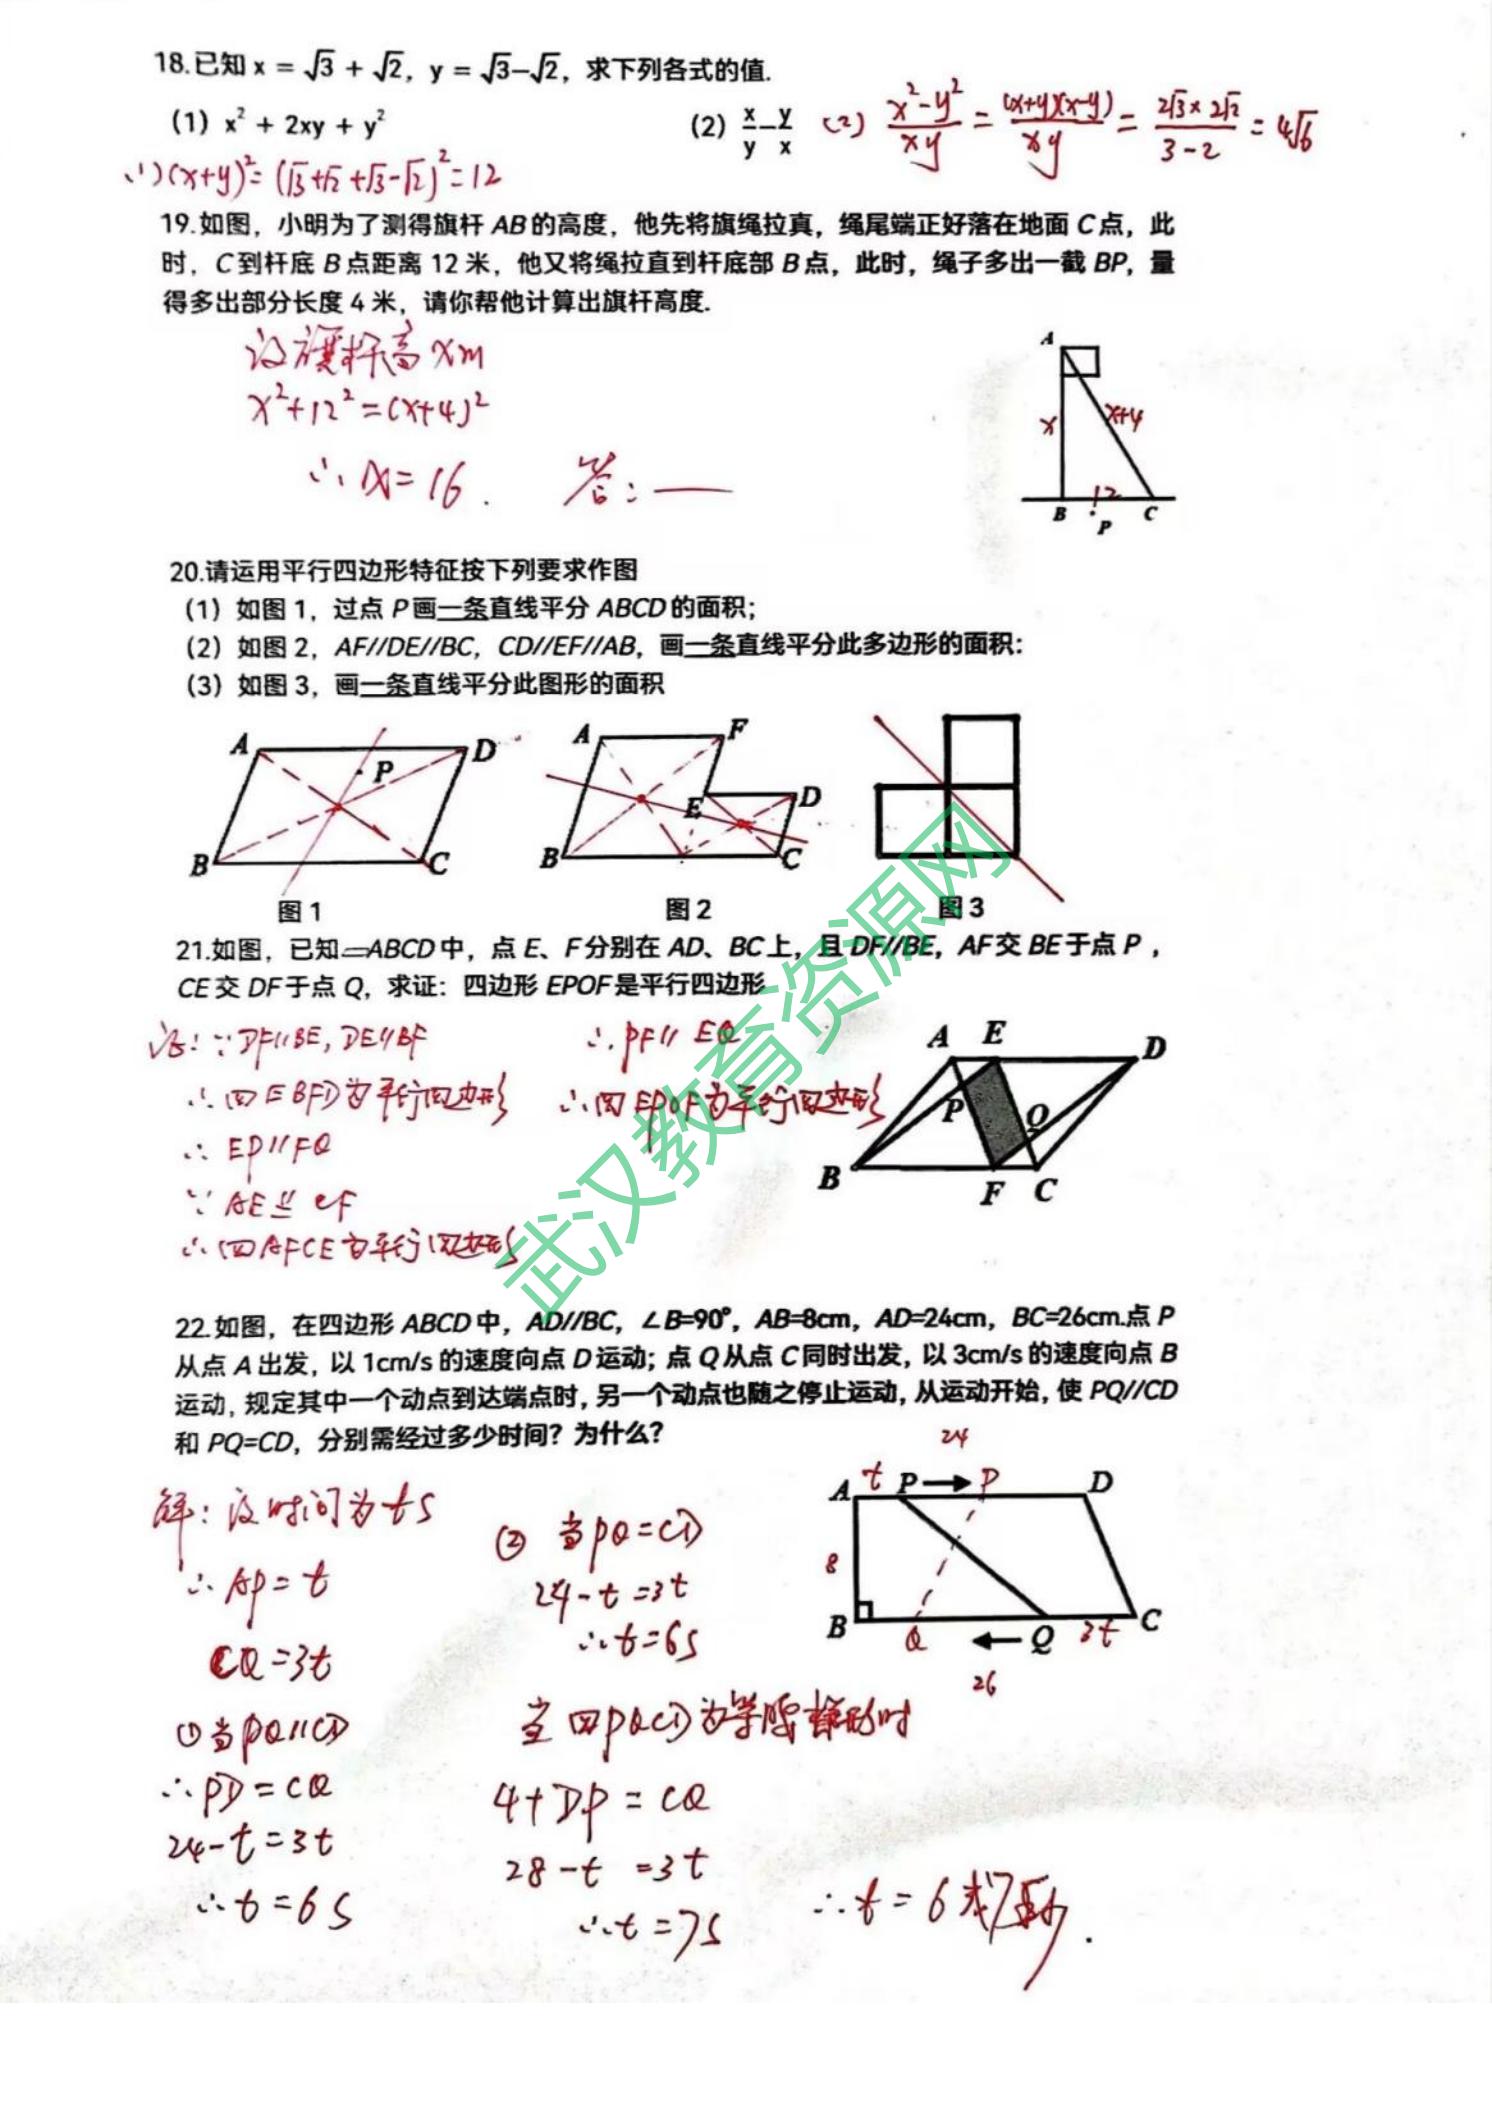 18.已知 x = √3 + √2, y = √3-√2, 求下列各式的值.
(1) x² + 2xy + y²
(2) x/y - y/x
(2) (x²-y²)/(xy) = (x+y)(x-y)/(xy) = (2√3×2√2)/(3-2) = 4√6
(1)(x+y)²=(√3+√2+√3-√2)²=12
19.如图，小明为了测得旗杆 AB 的高度，他先将旗绳拉真，绳尾端正好落在地面 C 点，此
时，C 到杆底 B 点距离 12 米，他又将绳拉直到杆底部 B 点，此时，绳子多出一截 BP，量
得多出部分长度 4 米，请你帮他计算出旗杆高度.
设旗杆高 xm
x²+12²=(x+4)²
∴x=16.
答:—
A
x
x+4
12
B
P
C
20.请运用平行四边形特征按下列要求作图
(1) 如图 1，过点 P 画一条直线平分 ABCD 的面积；
(2) 如图 2，AF//DE//BC，CD//EF//AB，画一条直线平分此多边形的面积：
(3) 如图 3，画一条直线平分此图形的面积
A
P
D
B
C
A
F
E
D
B
C
图 1
图 2
图 3
21.如图，已知▱ABCD 中，点 E、F 分别在 AD、BC 上，且 DF//BE，AF 交 BE 于点 P，
CE 交 DF 于点 Q，求证：四边形 EPOF 是平行四边形
证: ∵DF//BE, DE//BF
∴四EBFD为平行四边形
∴EP//FQ
∵AE∥=CF
∴四AFCE为平行四边形
∴PF//EQ
∴四EPQF为平行四边形
A
E
D
P
Q
B
F
C
22.如图，在四边形 ABCD 中，AD//BC，∠B=90°，AB=8cm，AD=24cm，BC=26cm.点 P
从点 A 出发，以 1cm/s 的速度向点 D 运动；点 Q 从点 C 同时出发，以 3cm/s 的速度向点 B
运动，规定其中一个动点到达端点时，另一个动点也随之停止运动，从运动开始，使 PQ//CD
和 PQ=CD，分别需经过多少时间？为什么？
解: 设时间为ts
∴AP=t
CQ=3t
①当PQ//CD
∴PD=CQ
24-t=3t
∴t=6s
②当PQ=CD
24-t=3t
∴t=6s
当四PQCD为等腰梯形时
4+DP=CQ
28-t=3t
∴t=7s
∴t=6或7秒.
24
A
t
P
P
D
8
B
Q
Q
3t
C
26
武汉教育资源网